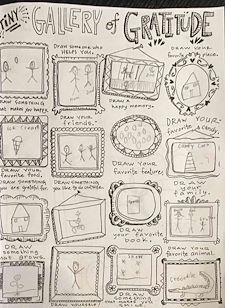 TINY GALLERY of GRATITUDE
DRAW someone who
HELPS you.
DRAW your
favorite place.
DRAW SOMETHING
that makes you happy.
DRAW a
happy memory.
ICE CREAM
DRAW your
friends.
DRAW YOUR
favorite candy.
Candy Corn
DRAW YOUR
favorite food.
DRAW SOMETHING
you are grateful for.
DRAW SOMETHING
you like to do outside.
DRAW YOUR
favorite feature.
DRAW
your
family.
DRAW
something
that grows.
DRAW
your favorite
book.
DRAW your
favorite animal.
crocodile
DRAW YOURSELF.
DRAW
something
that makes you